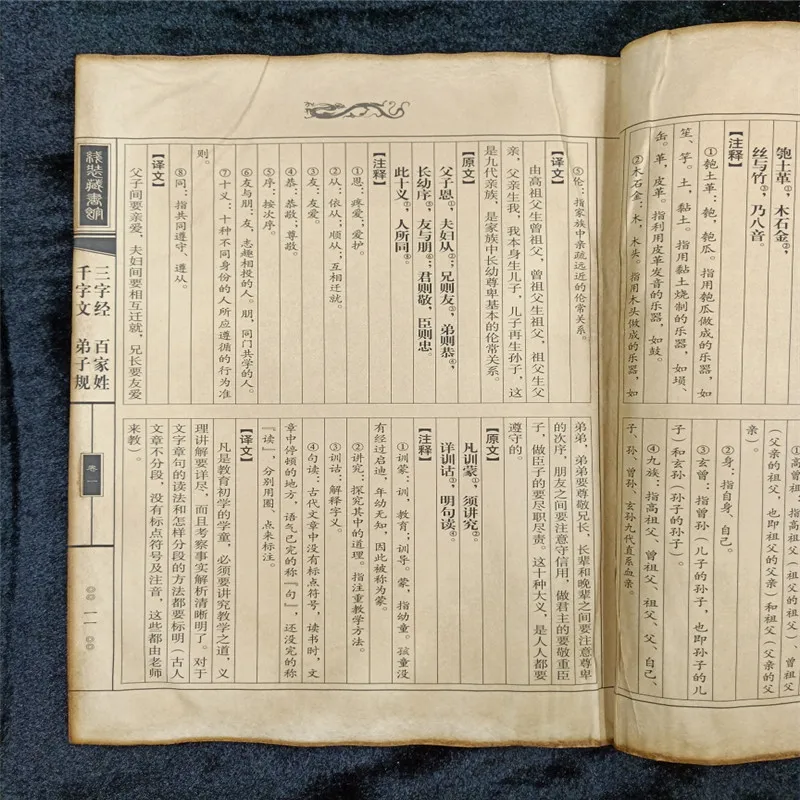 匏土革①,木石金②,
丝与竹③,乃八音。
【注释】
①匏土革:匏,匏瓜。指用匏瓜做成的乐器,如
笙、竽。土,黏土。指用黏土烧制的乐器,如埙、
缶。革,皮革。指利用皮革发音的乐器,如鼓。
②木石金:木,木头。指用木头做成的乐器,如
(父亲的祖父,也即祖父的父亲)和祖父(父亲的父
亲)。
②身:指自身、自己。
③玄曾:指曾孙(儿子的孙子,也即孙子的儿
子)和玄孙(孙子的孙子)。
④九族:指高祖父、曾祖父、祖父、父、自己、
子、孙、曾孙、玄孙九代直系血亲。
⑤伦:指家族中亲疏远近的伦常关系。
【译文】
由高祖父生曾祖父,曾祖父生祖父,祖父生父
亲,父亲生我,我本身生儿子,儿子再生孙子,这
是九代亲族,是家族中长幼尊卑基本的伦常关系。
【原文】
父子恩①,夫妇从②;兄则友③,弟则恭④,
长幼序⑤,友与朋⑥;君则敬,臣则忠。
此十义⑦,人所同⑧。
【注释】
①恩:疼爱;爱护。
②从:依从;顺从;互相迁就。
③友:友爱。
④恭:恭敬;尊敬。
⑤序:按次序。
⑥友与朋:友,志趣相投的人。朋,同门共学的人。
⑦十义:十种不同身份的人所应遵循的行为准
则。
⑧同:指共同遵守、遵从。
【译文】
父子间要亲爱,夫妇间要相互迁就,兄长要友爱
弟弟,弟弟要尊敬兄长,长辈和晚辈之间要注意尊卑
的次序,朋友之间要注意守信用,做君主的要敬重臣
子,做臣子的要尽职尽责。这十种大义,是人人都要
遵守的。
【原文】
凡训蒙①,须讲究②。
详训诂③,明句读④。
【注释】
①训蒙:训,教育;训导。蒙,指幼童。孩童没
有经过启迪,年幼无知,因此被称为蒙。
②讲究:探究其中的道理。指注重教学方法。
③训诂:解释字义。
④句读:古代文章中没有标点符号,读书时,文
章中停顿的地方,语气已完的称『句』,还没完的称
『读』,分别用圈、点来标注。
【译文】
凡是教育初学的学童,必须要讲究教学之道,义
理讲解要详尽,而且考察事实解析清晰明了。对于
文字章句的读法和怎样分段的方法都要标明(古人
文章不分段,没有标点符号及注音,这些都由老师
来教)。
线装藏书馆
三字经 百家姓
千字文 弟子规
卷一
一一